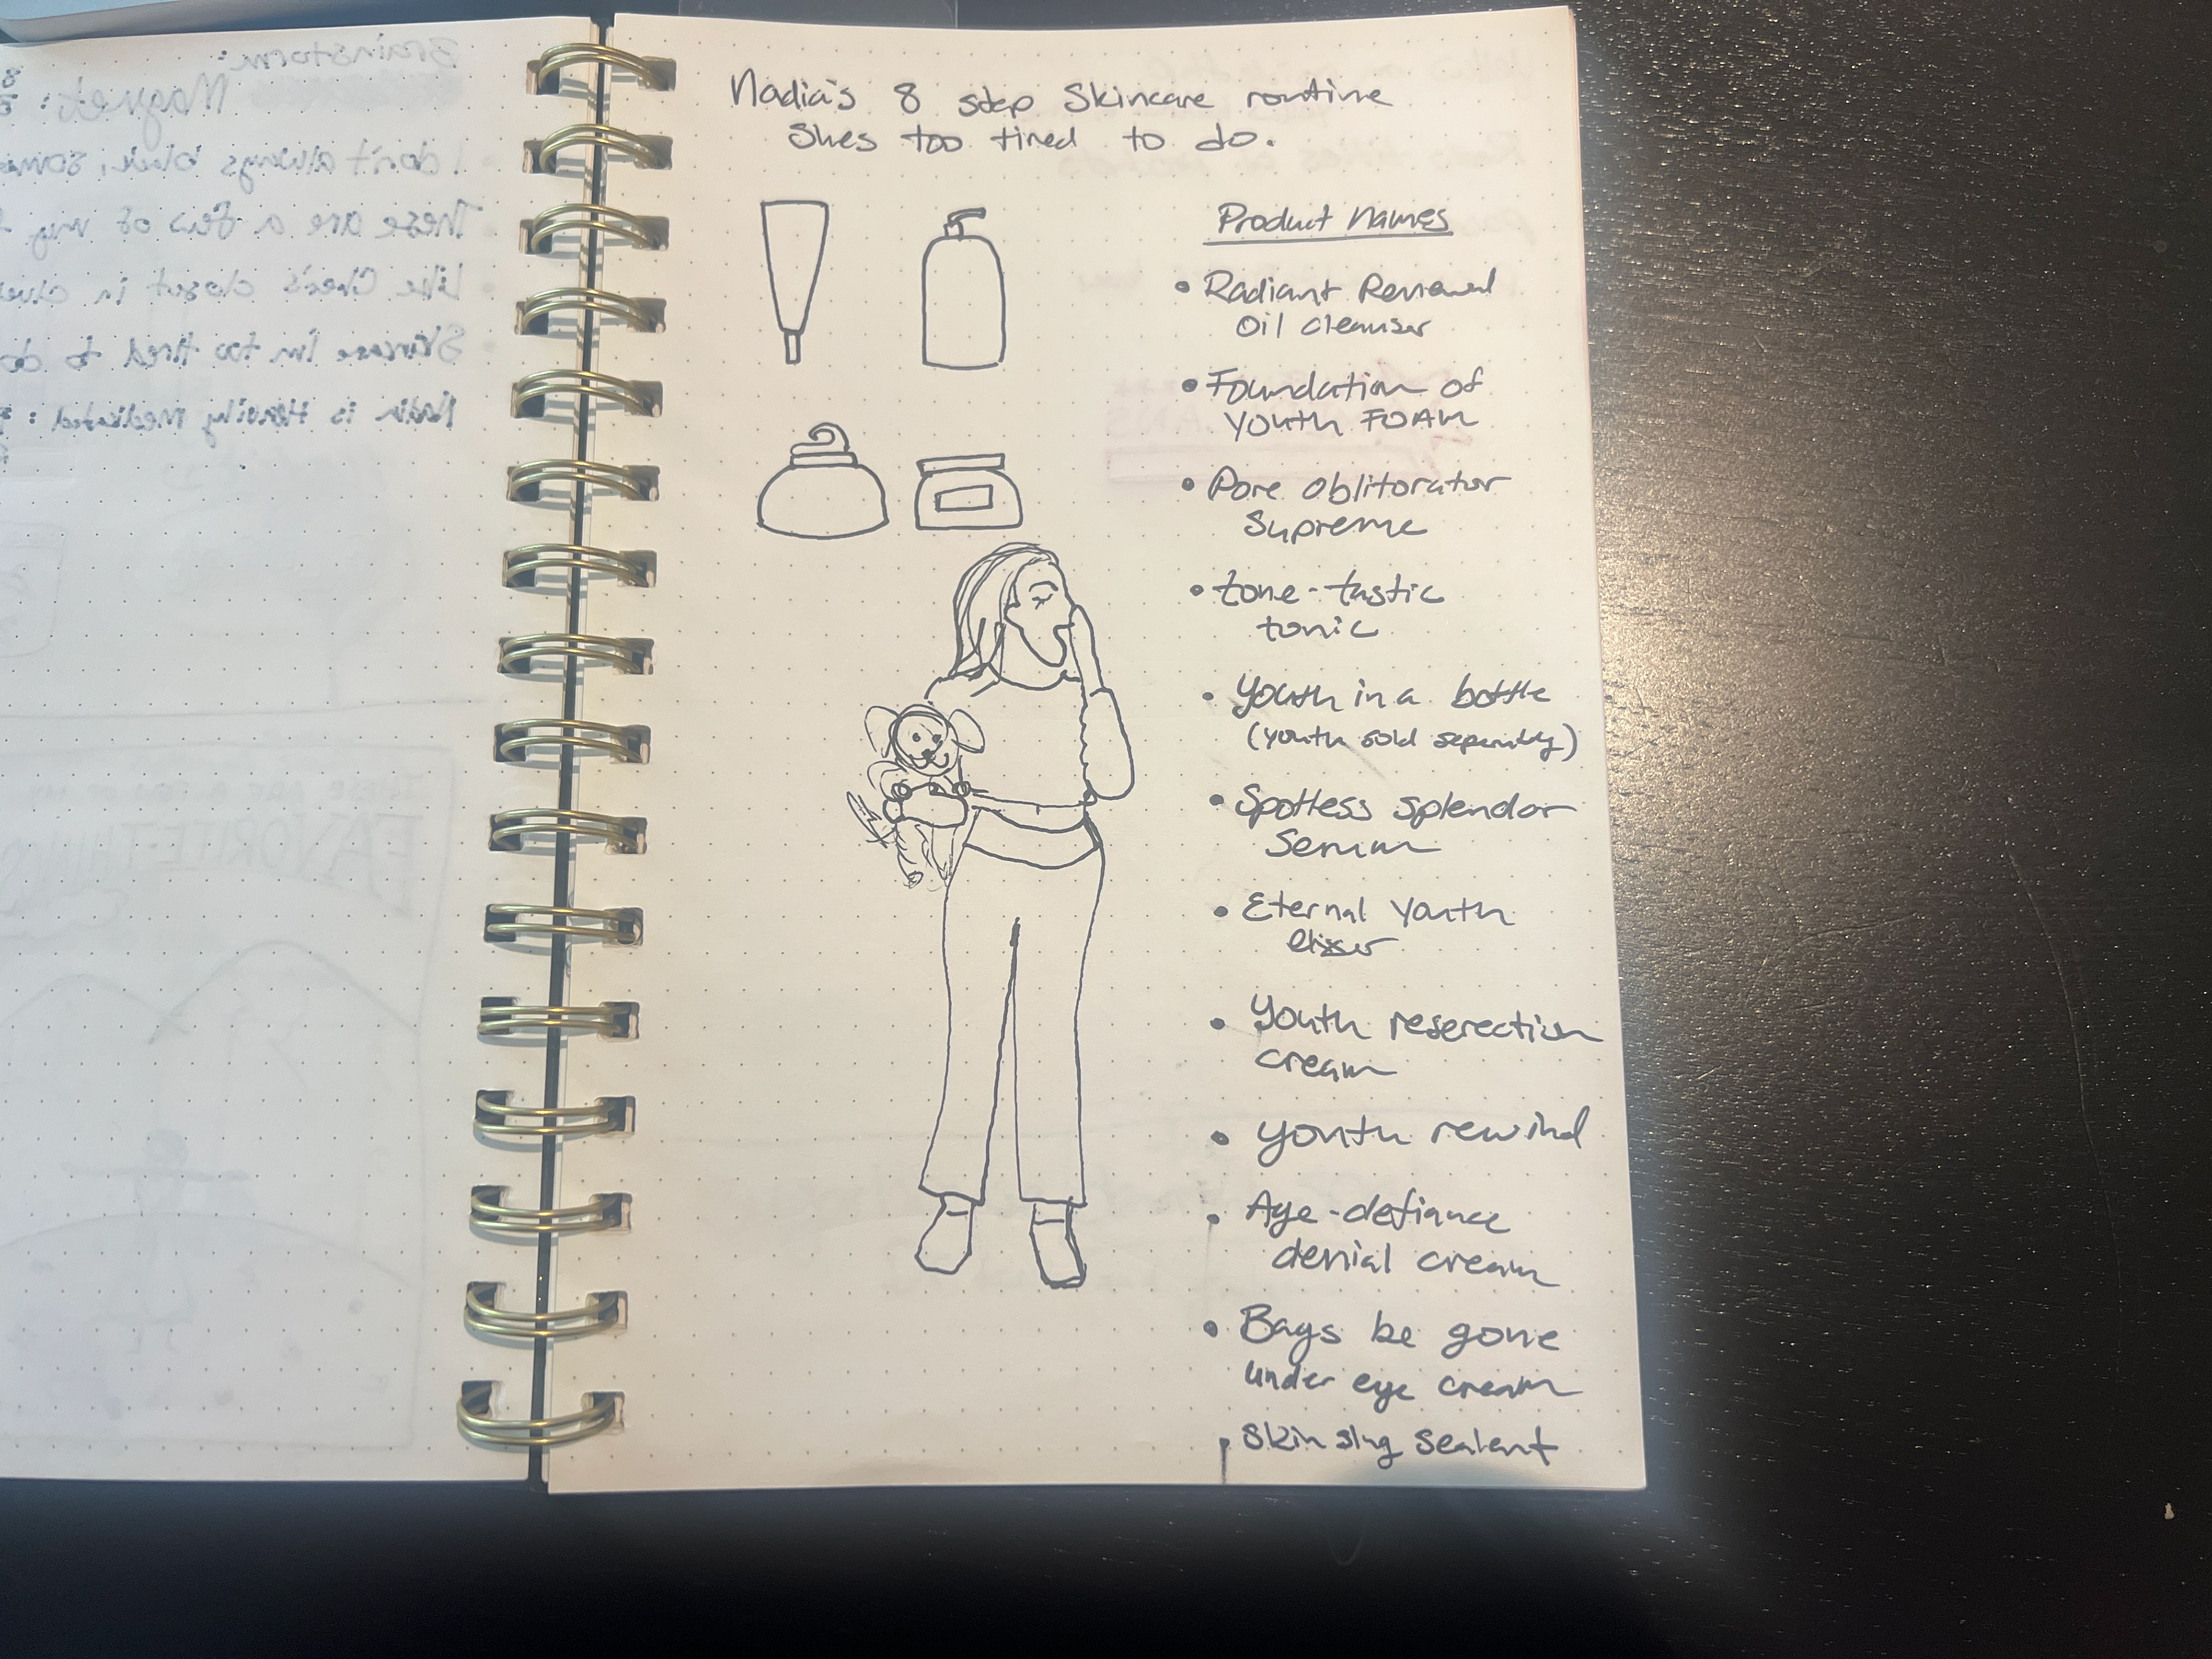 Nadia's 8 step Skincare routine
Shes too tired to do.
Product Names
• Radiant Renewal
Oil cleanser
• Foundation of
Youth FOAM
• Pore oblitorator
Supreme
• tone-tastic
tonic
• Youth in a bottle
(youth sold seperately)
• Spotless splendor
Serum
• Eternal Youth
elixer
• Youth reserection
cream
• youth rewind
• Age-defiance
denial cream
• Bags be gone
under eye cream
• Skin slug sealant
Brainstorm:
Magnet:
• I don't always black,
• These are a few of my
• Like Cher's closet in
• Skincare I'm too tired to do
Nadia is Heavily Medicated:
THESE ARE A FEW OF MY
FAVORITE THINGS